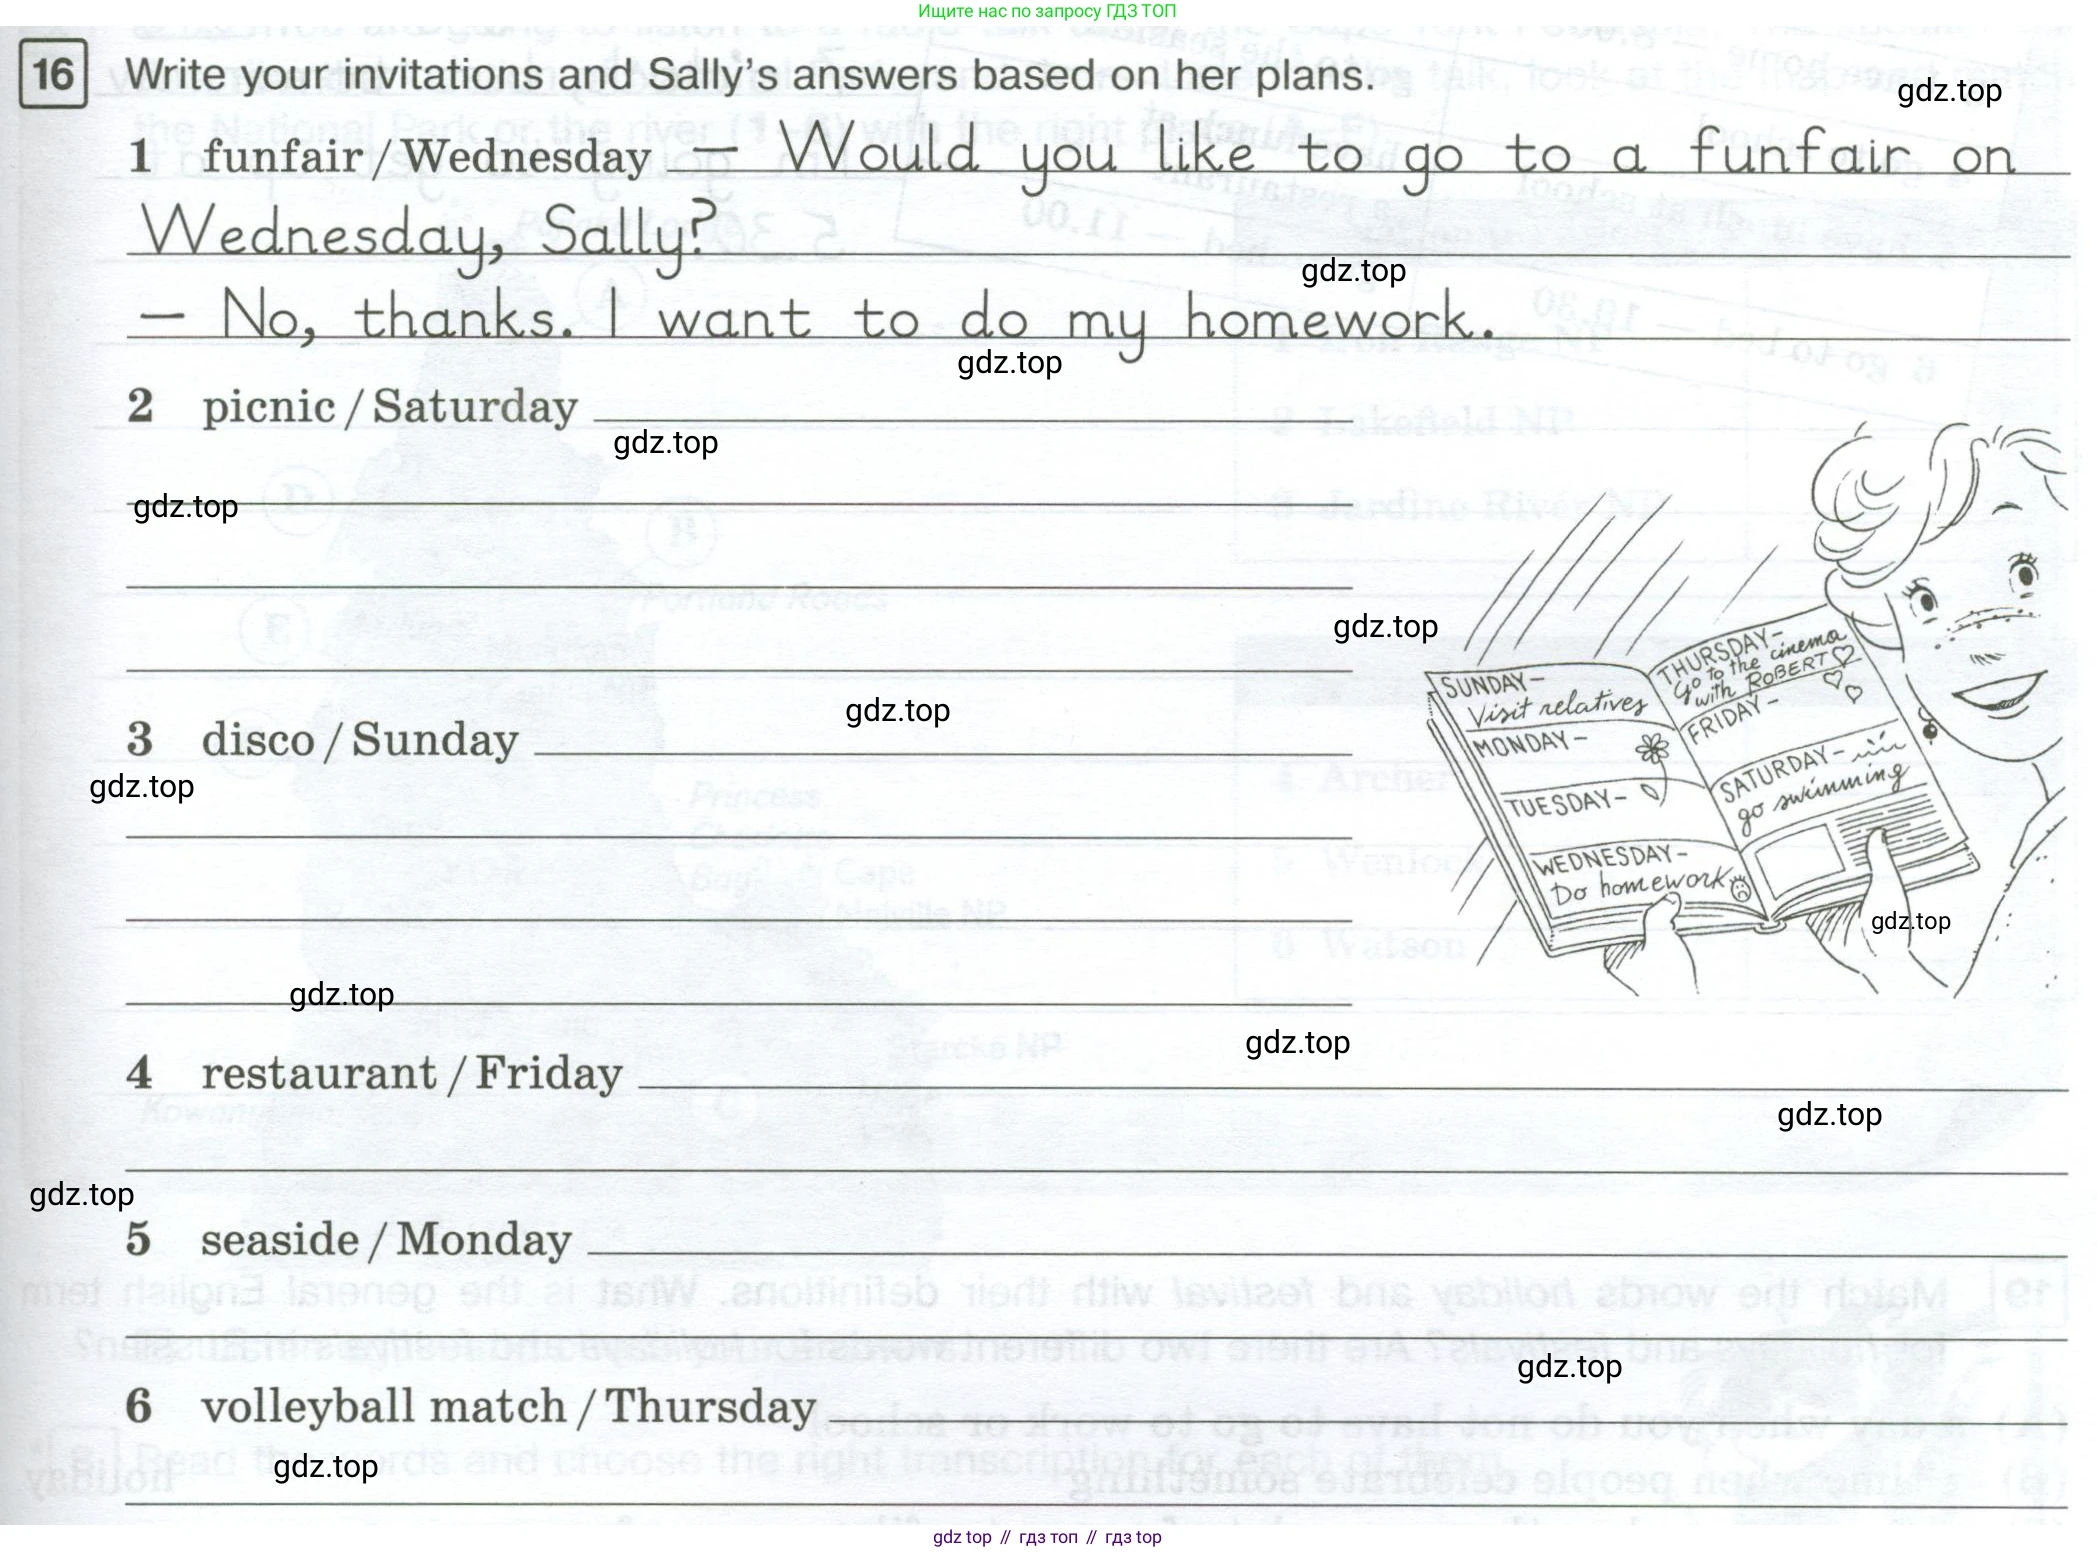 Ищите нас по запросу ГДЗ ТОП
16 Write your invitations and Sally's answers based on her plans.
gdz.top
1 funfair / Wednesday — Would you like to go to a funfair on
Wednesday, Sally?
gdz.top
— No, thanks. I want to do my homework.
gdz.top
2 picnic / Saturday
gdz.top
gdz.top
gdz.top
SUNDAY–
Visit relatives
MONDAY–
TUESDAY–
WEDNESDAY–
Do homework
THURSDAY–
Go to the cinema
with ROBERT
FRIDAY–
SATURDAY–
go swimming
gdz.top
gdz.top
3 disco / Sunday
gdz.top
gdz.top
gdz.top
4 restaurant / Friday
gdz.top
gdz.top
5 seaside / Monday
gdz.top
6 volleyball match / Thursday
gdz.top
gdz top // гдз топ // гдз top